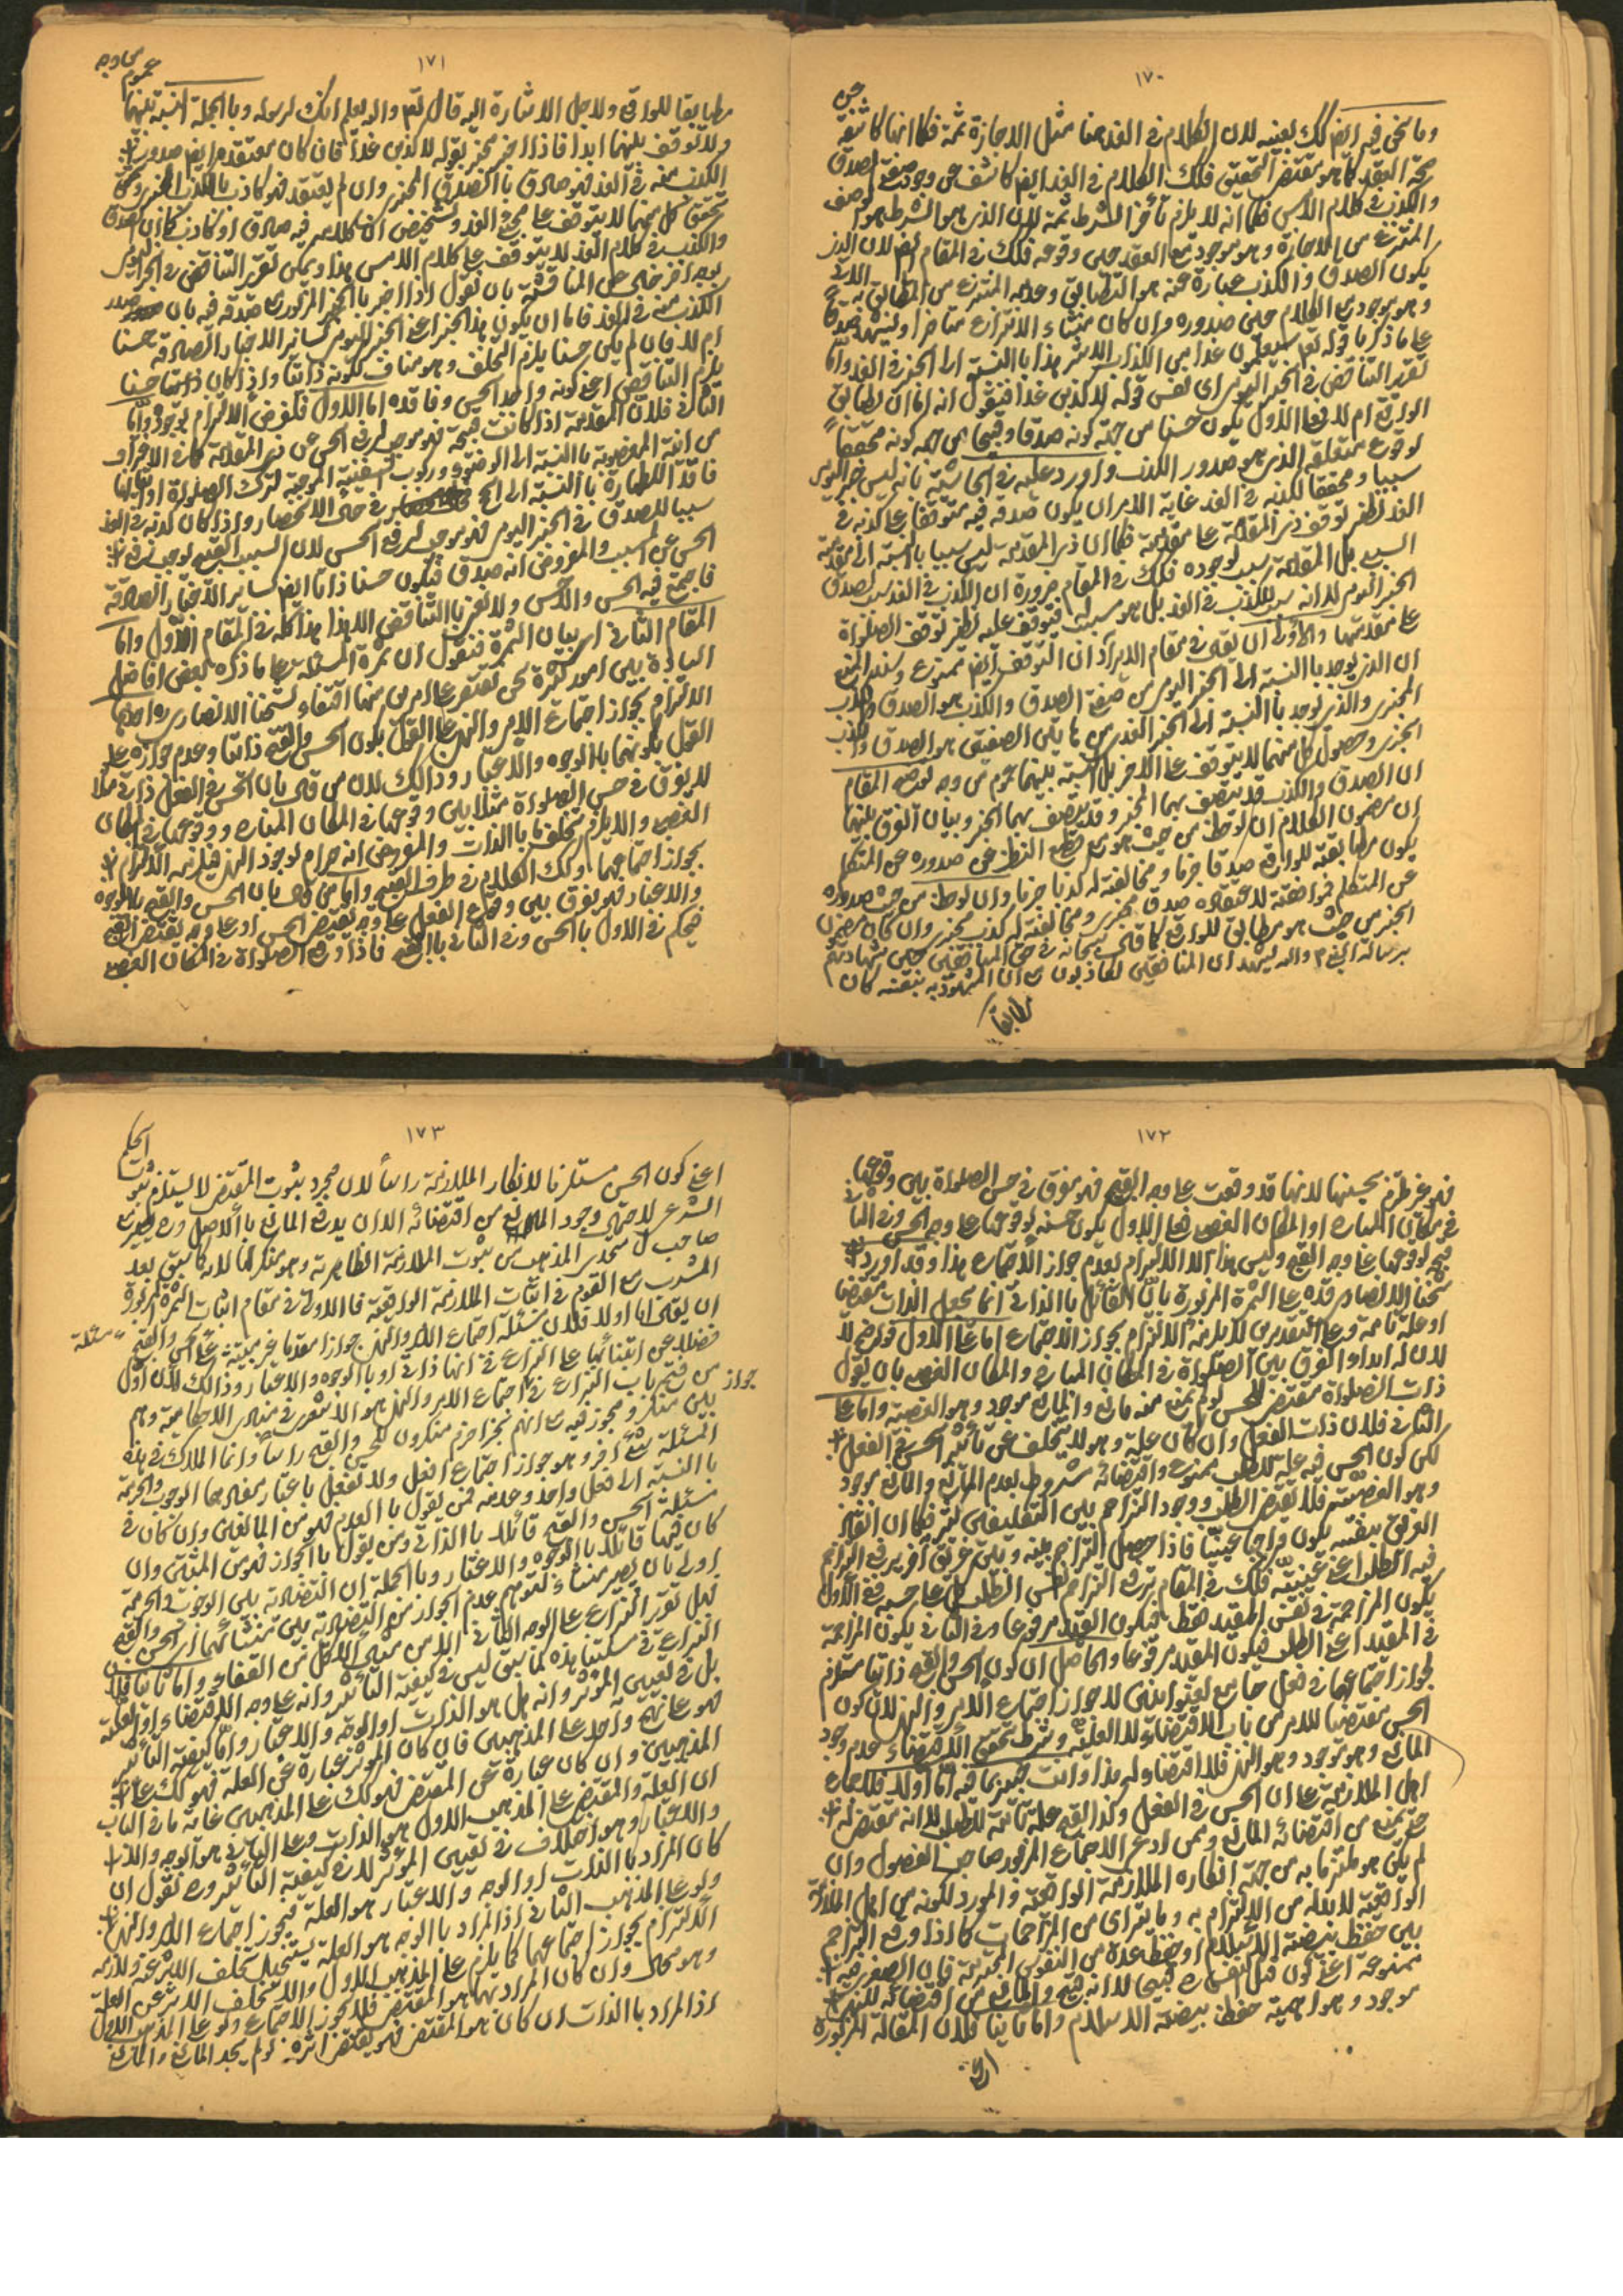 ١٧٠
وما نحن فيه ايضا كذلك بعينه لان الكلام في الغد هنا مثل الاجازة ثمة فكما انها كاشفة
عن
صحة العقد كما هو مقتضى التحقيق فكذلك الكلام في الغد ايضا كاشف عن وجود صفة الصدق
والكذب في كلام الامس فكما انه لا يلزم تأخر الشرط ثمة لان الذي هو الشرط هو الوصف
المنتزع من الاجازة وهو موجود مع العقد حين وقوعه فكذلك في المقام ايضا لان الذي
يكون الصدق والكذب عبارة عنه هو التطابق وعدمه المنتزع من المطابق به
وهو موجود مع الكلام حين صدوره وان كان منشاء الانتزاع متأخرا ويشهد
على ما ذكرنا قوله تعالى سيعلمون غدا من الكذاب الاشر هذا بالنسبة الى الخبر في الغد واما
تقرير التناقض في الخبر اليومي اى نفس قوله لاكذبن غدا فنقول انه اما ان يطابق
الواقع ام لا فعلى الاول يكون حسنا من جهة كونه صدقا وقبيحا من جهة كونه محققا
لوقوع متعلقه الذي هو صدور الكذب واورد عليه في الحاشية بانه ليس خبر اليوم
سببا ومحققا لكذبه في الغد غاية الامر ان يكون صدقه فيه متوقفا على كذبه في
الغد نظير توقف ذي المقدمة على مقدمته فكما ان ذي المقدمة ليس سببا بالنسبة الى مقدمته
بل المقدمة سبب لوجوده فكذلك في المقام ضرورة ان الكذب في الغد سبب لصدق
الخبر اليومي لا انه سبب للكذب في الغد بل هو مسبب فيتوقف عليه نظير توقف الصلواة
على مقدمتها والاولى ان يقال في مقام الايراد ان التوقف ايضا ممنوع وسند المنع
ان الذي يوجد بالنسبة الى الخبر اليومي من صفة الصدق والكذب هو الصدق والكذب
المخبري والذي يوجد بالنسبة الى الخبر الغدي من هاتين الصفتين هو الصدق والكذب
الخبري وحصول كل منهما لا يتوقف على الاخر بل النسبة بينهما عموم من وجه توضيح المقام
ان الصدق والكذب قد يتصف بهما المخبر وقد يتصف بهما الخبر وبيان الفرق بينهما
ان مضمون الكلام ان لوحظ من حيث هو مع قطع النظر عن صدوره عن المتكلم
يكون مطابقته للواقع صدقا خبريا ومخالفته له كذبا خبريا وان لوحظ من حيث صدوره
عن المتكلم فموافقته لاعتقاده صدق مخبري ومخالفته له كذب مخبري وان كان مضمون
الخبر من حيث هو مطابق للواقع كما قال سبحانه في حق المنافقين حين شهادتهم
برسالة النبي ص والله يشهد ان المنافقين لكاذبون مع ان المشهود به بنفسه كان
مطابقا
١٧١
مطابقا للواقع ولاجل الاشارة اليه قال تعالى والله يعلم انك لرسوله وبالجملة النسبة بينهما
عموم من وجه
ولا توقف بينهما ابدا فاذا اخبر مخبر بقوله لاكذبن غدا فان كان معتقدا ايضا صدور
الكذب منه في الغد فهو صادق بالصدق المخبري وان لم يعتقد فهو كاذب بالكذب المخبري
تحقق كل منهما لا يتوقف على مجئ الغد وتشخيص ان كلامه فيه صادق او كاذب كما ان الصدق
والكذب في كلام الغد لا يتوقف على كلام الامس هذا ويمكن تقرير التناقض في الخبر اليومي
بوجه اخر خال عن المناقشة بان نقول اذا اخبر بالخبر المزبور مع صدقه فيه بان صدر
الكذب منه في الغد فاما ان يكون هذا الخبر اعني الخبر اليومي كسائر الاخبار الصادقة حسنا
ام لا فان لم يكن حسنا يلزم التخلف وهو مناف لكونه ذاتيا واذا كان ذاتيا حسنا
يلزم التناقض اعني كونه واجد الحسن وفاقده اما الاول فلفرض الالتزام بوجوده واما
الثاني فلان المقدمة اذا كانت قبيحة فهو موجب لرفع الحسن عن ذي المقدمة كما في الاغتراف
من انية المغصوبة بالنسبة الى الوضوء وركوب السفينة الموجبة لترك الصلواة او اتيانها
فاقد الطهارة بالنسبة الى الحج في حال الانحصار واذا كان كذبه في الغد
سببا للصدق في الخبر اليومي فهو موجب لرفع الحسن لان السبب القبيح يوجب رفع
الحسن عن المسبب والمفروض انه صدق فيكون حسنا ذاتا ايضا كسائر الاخبار الصادقة
فاجتمع فيه الحسن واللاحسن ولا نعني بالتناقض الا هذا هذا كله في المقام الاول واما
المقام الثاني اى بيان الثمرة فنقول ان ثمرة المسئلة على ما ذكره بعض افاضل
السادة بين امور كثيرة نحن نقتصر على امرين منها اقتفاء لشيخنا الانصاري ره احدهما
الالتزام بجواز اجتماع الامر والنهي على القول بكون الحسن والقبح ذاتيا وعدم جوازه على
القول بكونهما بالوجوه والاعتبار وذالك لان من قال بان الحسن في الفعل ذاتي مثلا
لا يفرق في حسن الصلواة مثلا بين وقوعها في المكان المباح ووقوعها في المكان
الغصبي والا يلزم تخلف ما بالذات والمفروض انه حرام لوجود النهي فيلزمه الالتزام
بجواز اجتماعهما وكذلك الكلام في طرف القبح واما من قال بان الحسن والقبح بالوجوه
والاعتبار فهو يفرق بين وقوع الفعل على وجه يقتضي الحسن او على وجه يقتضي القبح
فيحكم في الاول بالحسن وفي الثاني بالقبح فاذا وقع الصلواة في المكان الغصبي
١٧٢
فهو غير ملتزم بحسنها لانها قد وقعت على وجه القبح فهو مفرق في حسن الصلواة بين وقوعها
في مكان المباح او المكان الغصبي فعلى الاول يكون حسنة لوقوعها على وجه الحسن وفي الثاني
قبيح لوقوعها على وجه القبح وليس هذا الا الالتزام بعدم جواز الاجتماع هذا وقد اورد
شيخنا الانصاري قده على الثمرة المزبورة بان القائل بالذاتي انما يجعل الذات مقتضيا
او علة تامة وعلى التقديرين لا يلزمه الالتزام بجواز الاجتماع اما على الاول فواضح لا
لان له ابداء الفرق بين الصلواة في المكان المباح والمكان الغصبي بان يقول
ذات الصلواة مقتضي للحسن لو لم يمنع عنه مانع والمانع موجود وهو الغصبية واما على
الثاني فلان ذات الفعل وان كان علة وهو لا يتخلف عن تأثير الحسن في الفعل
لكن كون الحسن فيه علة للطلب ممنوع واقتضائه مشروط بعدم المانع والمانع موجود
وهو الغصبية فلا يقتضي الطلب ووجود التزاحم بين التكليفين كثير فكما ان انقاذ
الغريق بنفسه يكون واجبا عينيا فاذا حصل التزاحم بينه وبين غريق اخر يرفع التزاحم
فيه الطلب اعني عينيته فكذلك في المقام يرفع التزاحم نفس الطلب كل على حسبه ففي الاول
يكون المزاحمة في نفس المقيد فقط فيكون القيد مرفوعا وفي الثاني يكون المزاحمة
في المقيد اعني الطلب فيكون المقيد مرفوعا والحاصل ان كون الحسن والقبح ذاتيا مستلزم
لجواز اجتماعهما في فعل خاص بعنوانين لا جواز اجتماع الامر والنهي لان كون
الحسن مقتضيا للامر من باب الاقتضاء لا العلية وشرط تحقق الاقتضاء عدم وجود
المانع وهو موجود وهو النهي فلا اقتضاء له هذا وانت خبير بما فيه اما اولا فلاجماع
اهل الملازمة على ان الحسن في الفعل وكذا القبح علة تامة للطلب لا انه مقتضي له
حتى يمنع من اقتضائه المانع وممن ادعى الاجماع المزبور صاحب الفصول وان
لم يكن هو ملتزما به من جهة انكاره الملازمة الواقعية والمورد لكونه من اهل الملازمة
الواقعية لا بد له من الالتزام به وما تترائى من المزاحمات كما اذا وقع التزاحم
بين حفظ بيضة الاسلام او حفظ عدة من النفوس المحترمة فان الصغرى فيه
ممنوعة اعني كون قتل النفس ح قبيحا لا انه قبيح والمانع من اقتضائه للنهي
موجود وهو اهمية حفظ بيضة الاسلام واما ثانيا فلان المقالة المزبورة
اعني
١٧٣
اعني كون الحسن مستلزما لانكار الملازمة رأسا لان مجرد ثبوت المقتضي لا يستلزم ثبوت
الحكم
الشرعي لاحتمال وجود المانع من اقتضائه الا ان يدفع المانع بالاصل وح يصير مع
صاحب الفصول متحدى المذهب من ثبوت الملازمة الظاهرية وهو منكر لها لانه كما سبق بعد
المشرب مع القوم في اثبات الملازمة الواقعية فالاولى في مقام اثبات الثمرة المزبورة
ان يقال اما اولا فلان مسئلة اجتماع الامر والنهي جوازا وعدما غير مبتنية على الحسن والقبح
مسئلة
فضلا عن ابتنائها على النزاع في انها ذاتي او بالوجوه والاعتبار وذالك لان اول
من فتح باب النزاع في اجتماع الامر والنهي هو الاشعري في مبادى الاحكامية وهم
جواز
بين منكر ومجوز فيه مع انهم بجزاء جزم منكرون للحسن والقبح رأسا وانما الملاك في هذه
المسئلة شئ اخر وهو جواز اجتماع افعل ولا تفعل باعتبار مفادهما الوجوب والحرمة
بالنسبة الى فعل واحد وعدمه فمن يقول بالعدم فهو من المانعين وان كان في
مسئلة الحسن والقبح قائلا بالذاتي ومن يقول بالجواز فهو من المثبتين وان
كان فيها قائلا بالوجوه والاعتبار وبالجملة ان التضاد بين الوجوب والحرمة
اولى بان يصير منشاء لتوهم عدم الجواز من التضاد بين منشائهما اى الحسن والقبح
لعل تقرير النزاع على الوجه الثاني من القضاء واما ثانيا فلان
النزاع في مسئلتنا هذه كما سبق ليس في كيفية التأثير وانه على وجه الاقتضاء او العلية
بل في تعيين المؤثر وانه هل هو الذات او الوجه والاعتبار واما كيفية التأثير
فهو على نهج واحد على المذهبين فان كان المؤثر عبارة عن العلة فهو كذلك على
المذهبين وان كان عبارة عن المقتضي فهو كذلك على المذهبين غاية ما في الباب
ان العلة والمقتضي على المذهب الاول هو الذات وعلى الثاني هو الوجه
والاعتبار وهو اختلاف في تعيين المؤثر لا في كيفية التأثير وح نقول ان
كان المراد بالذات او الوجه والاعتبار هو العلة فيجوز اجتماع الامر والنهي
ولو على المذهب الثاني اذ المراد بالوجه هو العلة يستحيل تخلف الاثر عنه ولازمه
الالتزام بجواز اجتماعهما كما يلزم على المذهب الاول والا لتخلف الاثر عن العلة
وهو محال وان كان المراد بهما هو المقتضي فلا يجوز الاجتماع ولو على المذهب الاول
اذ المراد بالذات ان كان هو المقتضي فهو يقتضي اثره لو لم يجد المانع والمانع